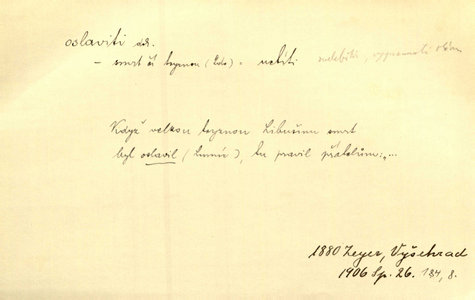 oslaviti dok.
– smrt čí tryznou (kdo) =
Když velkou tryznou Libušinu smrt
byl oslavil ( ), tu pravil přátelům: „...
1880 Zeyer, Vyšehrad
1906 Sp. 26. 184, 8.